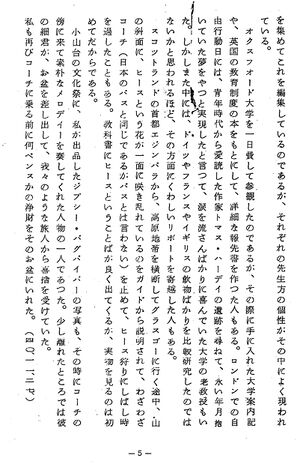 を集めてこれを編集しているのであるが、それぞれの先生方の個性がその中によく現われ
ている。
　オクスフォード大学を一日費して参観したのであるが、その際に手に入れた大学案内記
や、英国の教育制度の本をもとにして、詳細な報告書を作った人もある。ロンドンでの自
由行動日には、青年時代から愛読した作家トマス・ハーディの遺跡を尋ねて、永い年月抱
いていた夢をやっと実現したと言つて、涙を流さんばかりに喜んでいた大学の老教授もい
た。しかしまた中には、ドイツやフランスやイギリスの飲物ばかりを比較研究したのでは
ないかと思われるほど、その方面にくわしいリポートを寄越した人もある。
　スコットランドの首都エジンバラから、高原地帯を横断してグラスゴーに行く途中、山
の斜面に、ヒースという花が一面に咲き乱れているのをガイドから説明されて、わざわざ
コーチ（日本のバスと同じであるがバスとは言わない）を止めて、ヒース狩りにしばし時
を過したこともある。教科書にヒースということばが良く出てくるが、実物を見るのは初
めてだからである。
　小山台の文化祭に、私が出品したジプシー・バグパイパーの写真も、その時にコーチの
傍に来て素朴なメロディーを奏してくれた人物の一人であつた。少し離れたところでは彼
の細君が、お盆を差し出して、我々のような旅人から喜捨を受けていた。
　私も再びコーチに乗る前に何ペンスかの浄財をそのお盆にいれた。（四〇・一一・二七）
— 5 —